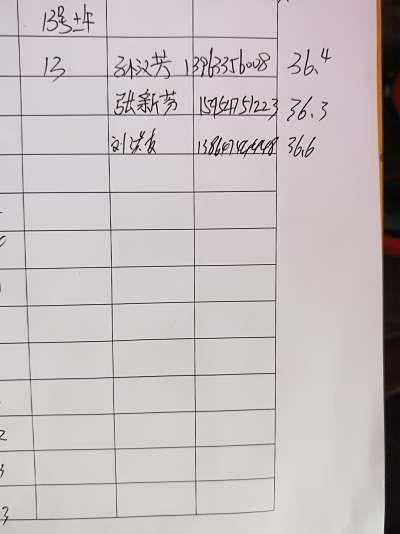 13号上午
13 孙汉芳 13963356008 36.4
张新芳 15954751223 36.3
刘洪友 36.6
2
3
3